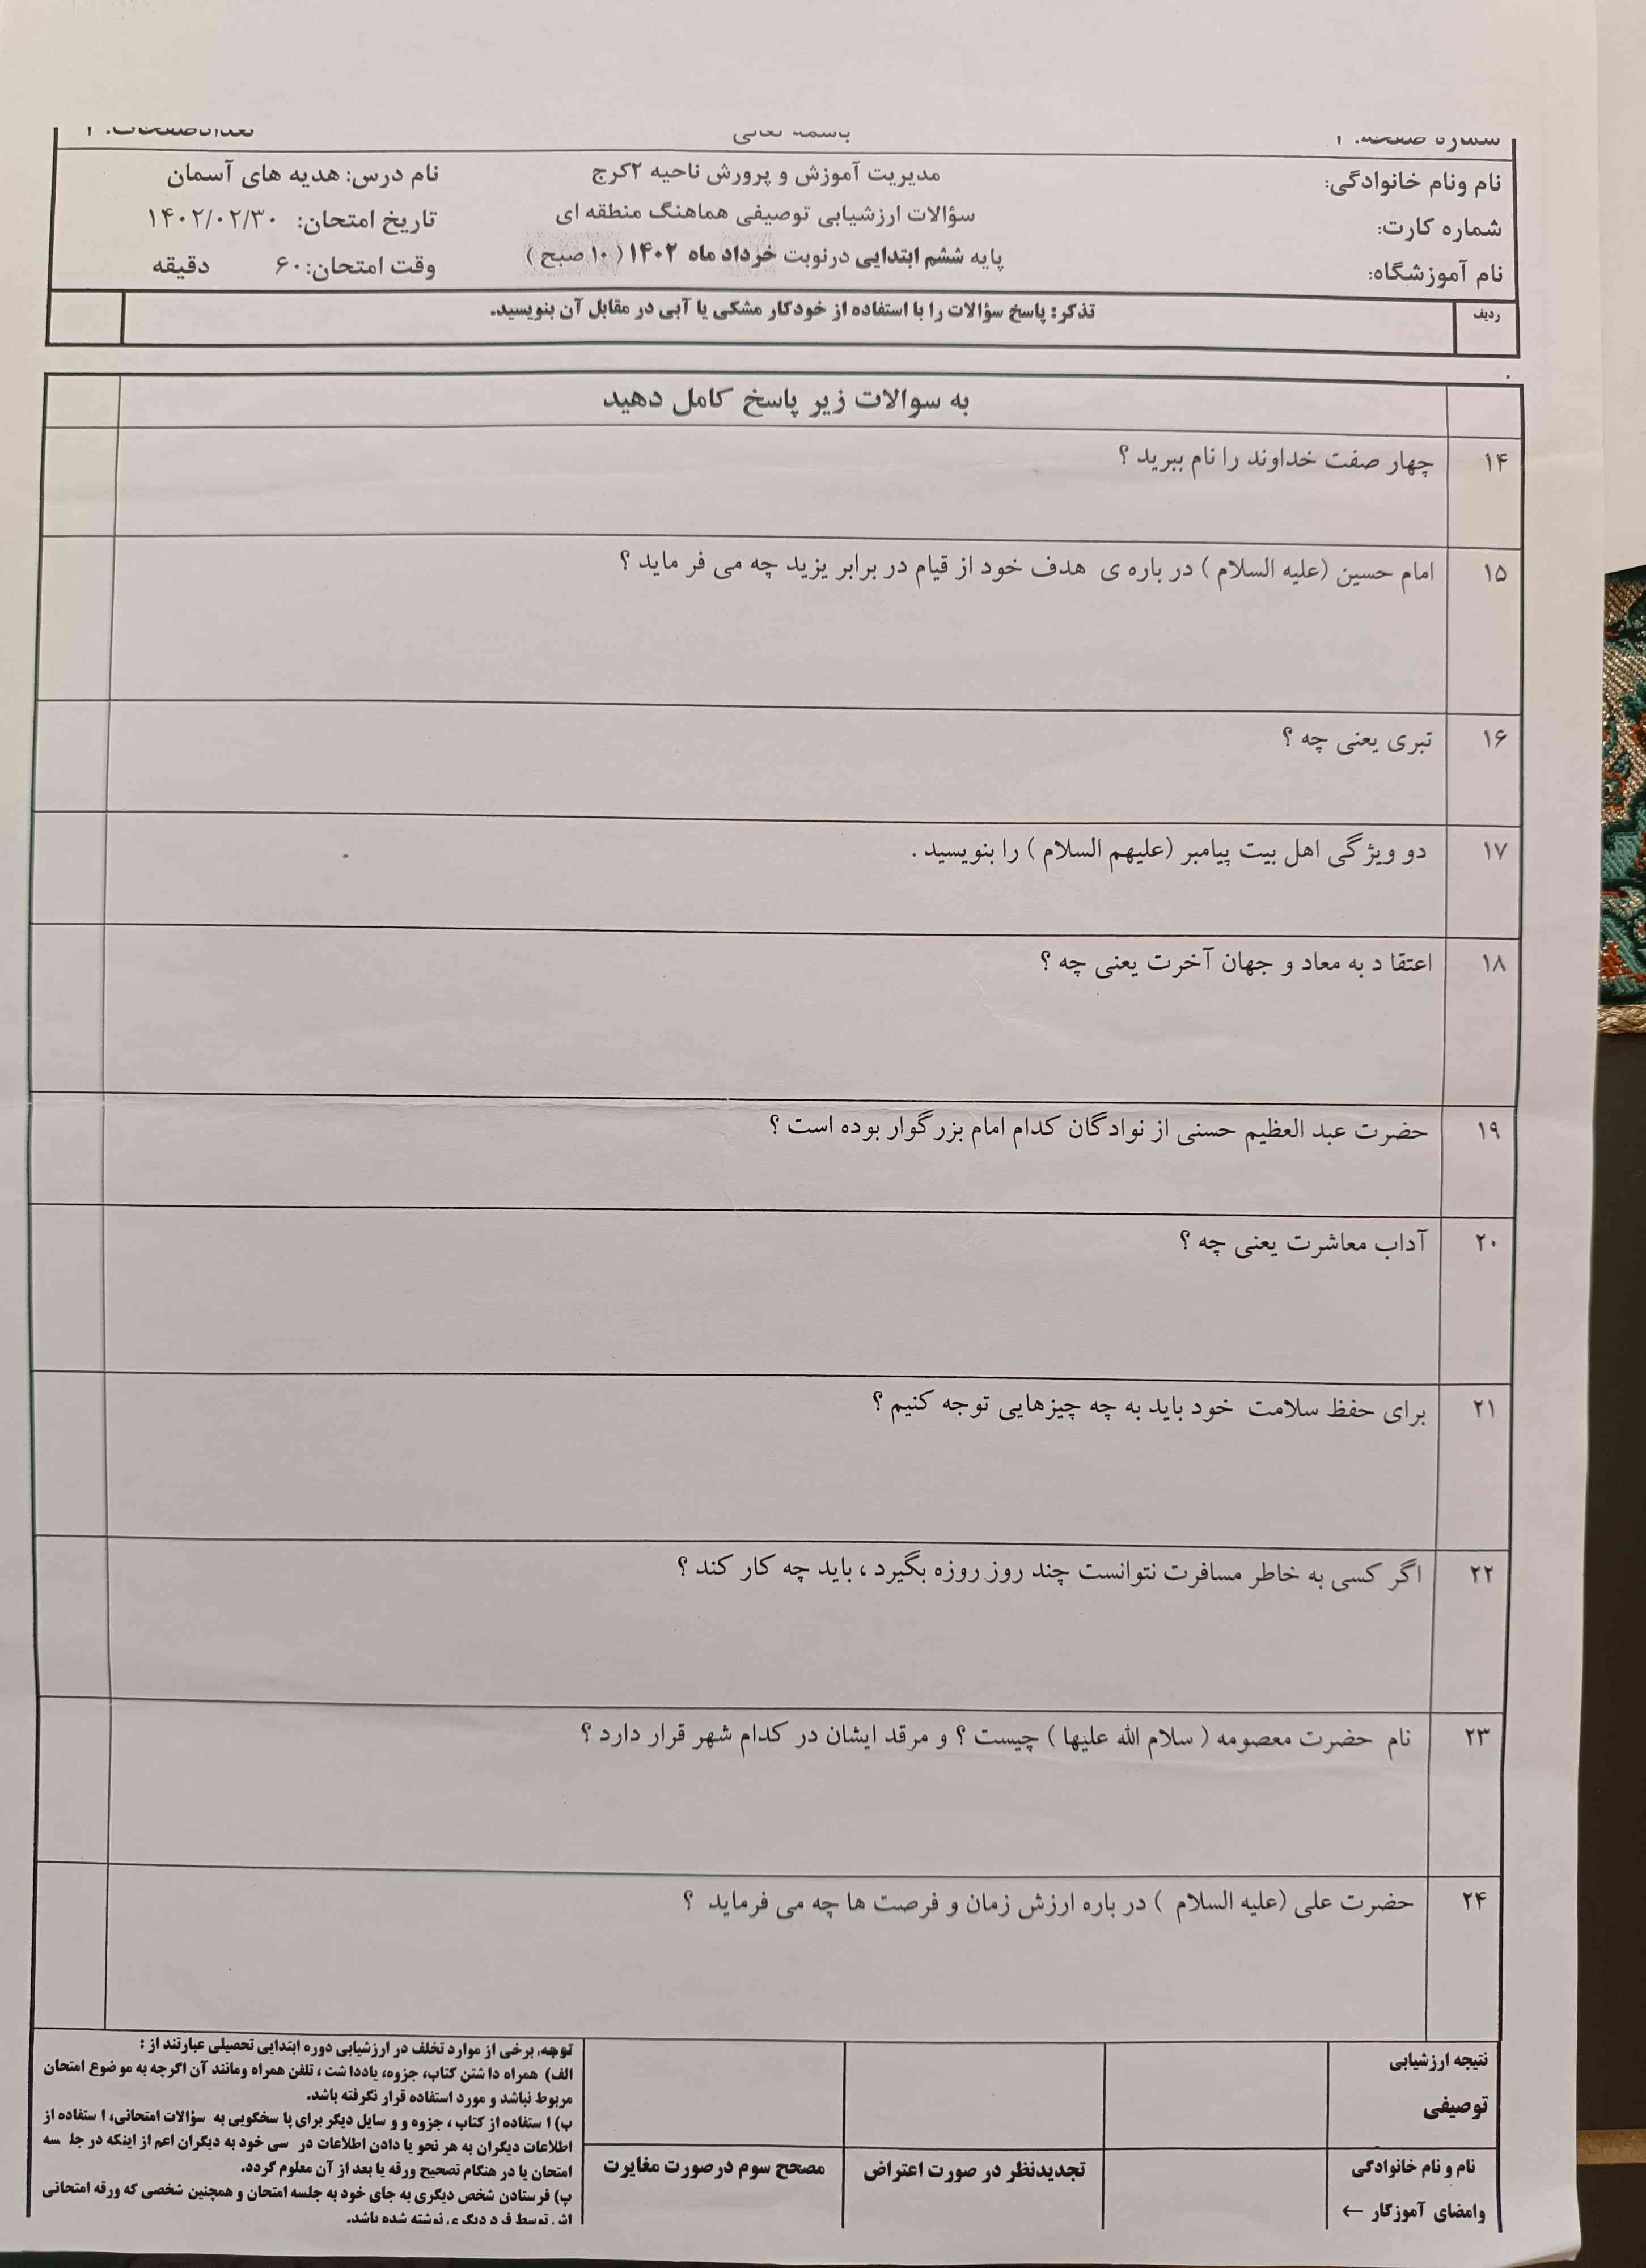 باسمه تعالی
نام ونام خانوادگی:
مدیریت آموزش و پرورش ناحیه ۲کرج
نام درس: هدیه های آسمان
شماره کارت:
سؤالات ارزشیابی توصیفی هماهنگ منطقه ای
تاریخ امتحان: ۱۴۰۲/۰۲/۳۰
نام آموزشگاه:
پایه ششم ابتدایی درنوبت خرداد ماه ۱۴۰۲ (۱۰ صبح)
وقت امتحان:۶۰ دقیقه
ردیف
تذکر: پاسخ سؤالات را با استفاده از خودکار مشکی یا آبی در مقابل آن بنویسید.
به سوالات زیر پاسخ کامل دهید
۱۴ چهار صفت خداوند را نام ببرید ؟
۱۵ امام حسین (علیه السلام ) در باره ی هدف خود از قیام در برابر یزید چه می فر ماید ؟
۱۶ تبری یعنی چه ؟
۱۷ دو ویژگی اهل بیت پیامبر (علیهم السلام ) را بنویسید .
۱۸ اعتقا د به معاد و جهان آخرت یعنی چه ؟
۱۹ حضرت عبد العظیم حسنی از نوادگان کدام امام بزرگوار بوده است ؟
۲۰ آداب معاشرت یعنی چه ؟
۲۱ برای حفظ سلامت خود باید به چه چیزهایی توجه کنیم ؟
۲۲ اگر کسی به خاطر مسافرت نتوانست چند روز روزه بگیرد ، باید چه کار کند ؟
۲۳ نام حضرت معصومه ( سلام الله علیها ) چیست ؟ و مرقد ایشان در کدام شهر قرار دارد ؟
۲۴ حضرت علی (علیه السلام ) در باره ارزش زمان و فرصت ها چه می فرماید ؟
نتیجه ارزشیابی
توصیفی
نام و نام خانوادگی
وامضای آموزگار ←
تجدیدنظر در صورت اعتراض
مصحح سوم درصورت مغایرت
توجه، برخی از موارد تخلف در ارزشیابی دوره ابتدایی تحصیلی عبارتند از :
الف) همراه دا شتن کتاب، جزوه، یاددا شت ، تلفن همراه ومانند آن اگرچه به مو ضوع امتحان
مربوط نباشد و مورد استفاده قرار نگرفته باشد.
ب) ا ستفاده از کتاب ، جزوه و و سایل دیگر برای پا سخگویی به سؤالات امتحانی، ا ستفاده از
اطلاعات دیگران به هر نحو یا دادن اطلاعات در سی خود به دیگران اعم از اینکه در جل سه
امتحان یا در هنگام تصحیح ورقه یا بعد از آن معلوم گردد.
پ) فرستادن شخص دیگری به جای خود به جلسه امتحان و همچنین شخصی که ورقه امتحانی
اش توسط فرد دیگری نوشته شده باشد.